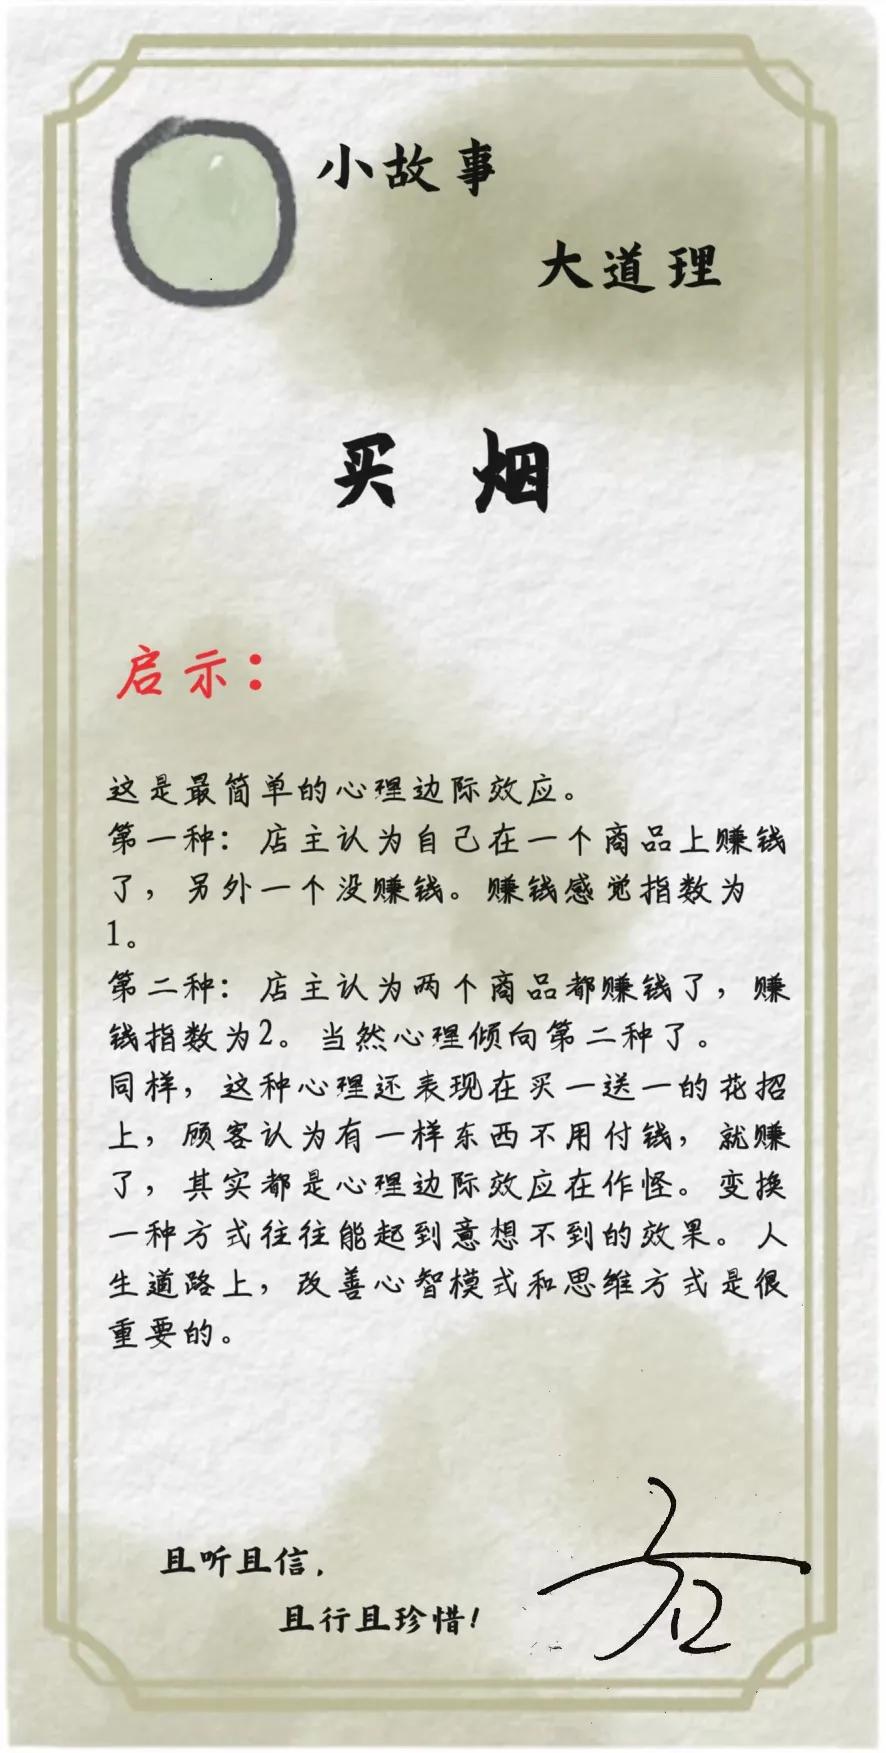 小故事
大道理
买 烟
启示：
这是最简单的心理边际效应。
第一种：店主认为自己在一个商品上赚钱
了，另外一个没赚钱。赚钱感觉指数为
1。
第二种：店主认为两个商品都赚钱了，赚
钱指数为2。当然心理倾向第二种了。
同样，这种心理还表现在买一送一的花招
上，顾客认为有一样东西不用付钱，就赚
了，其实都是心理边际效应在作怪。变换
一种方式往往能起到意想不到的效果。人
生道路上，改善心智模式和思维方式是很
重要的。
且听且信，
且行且珍惜！